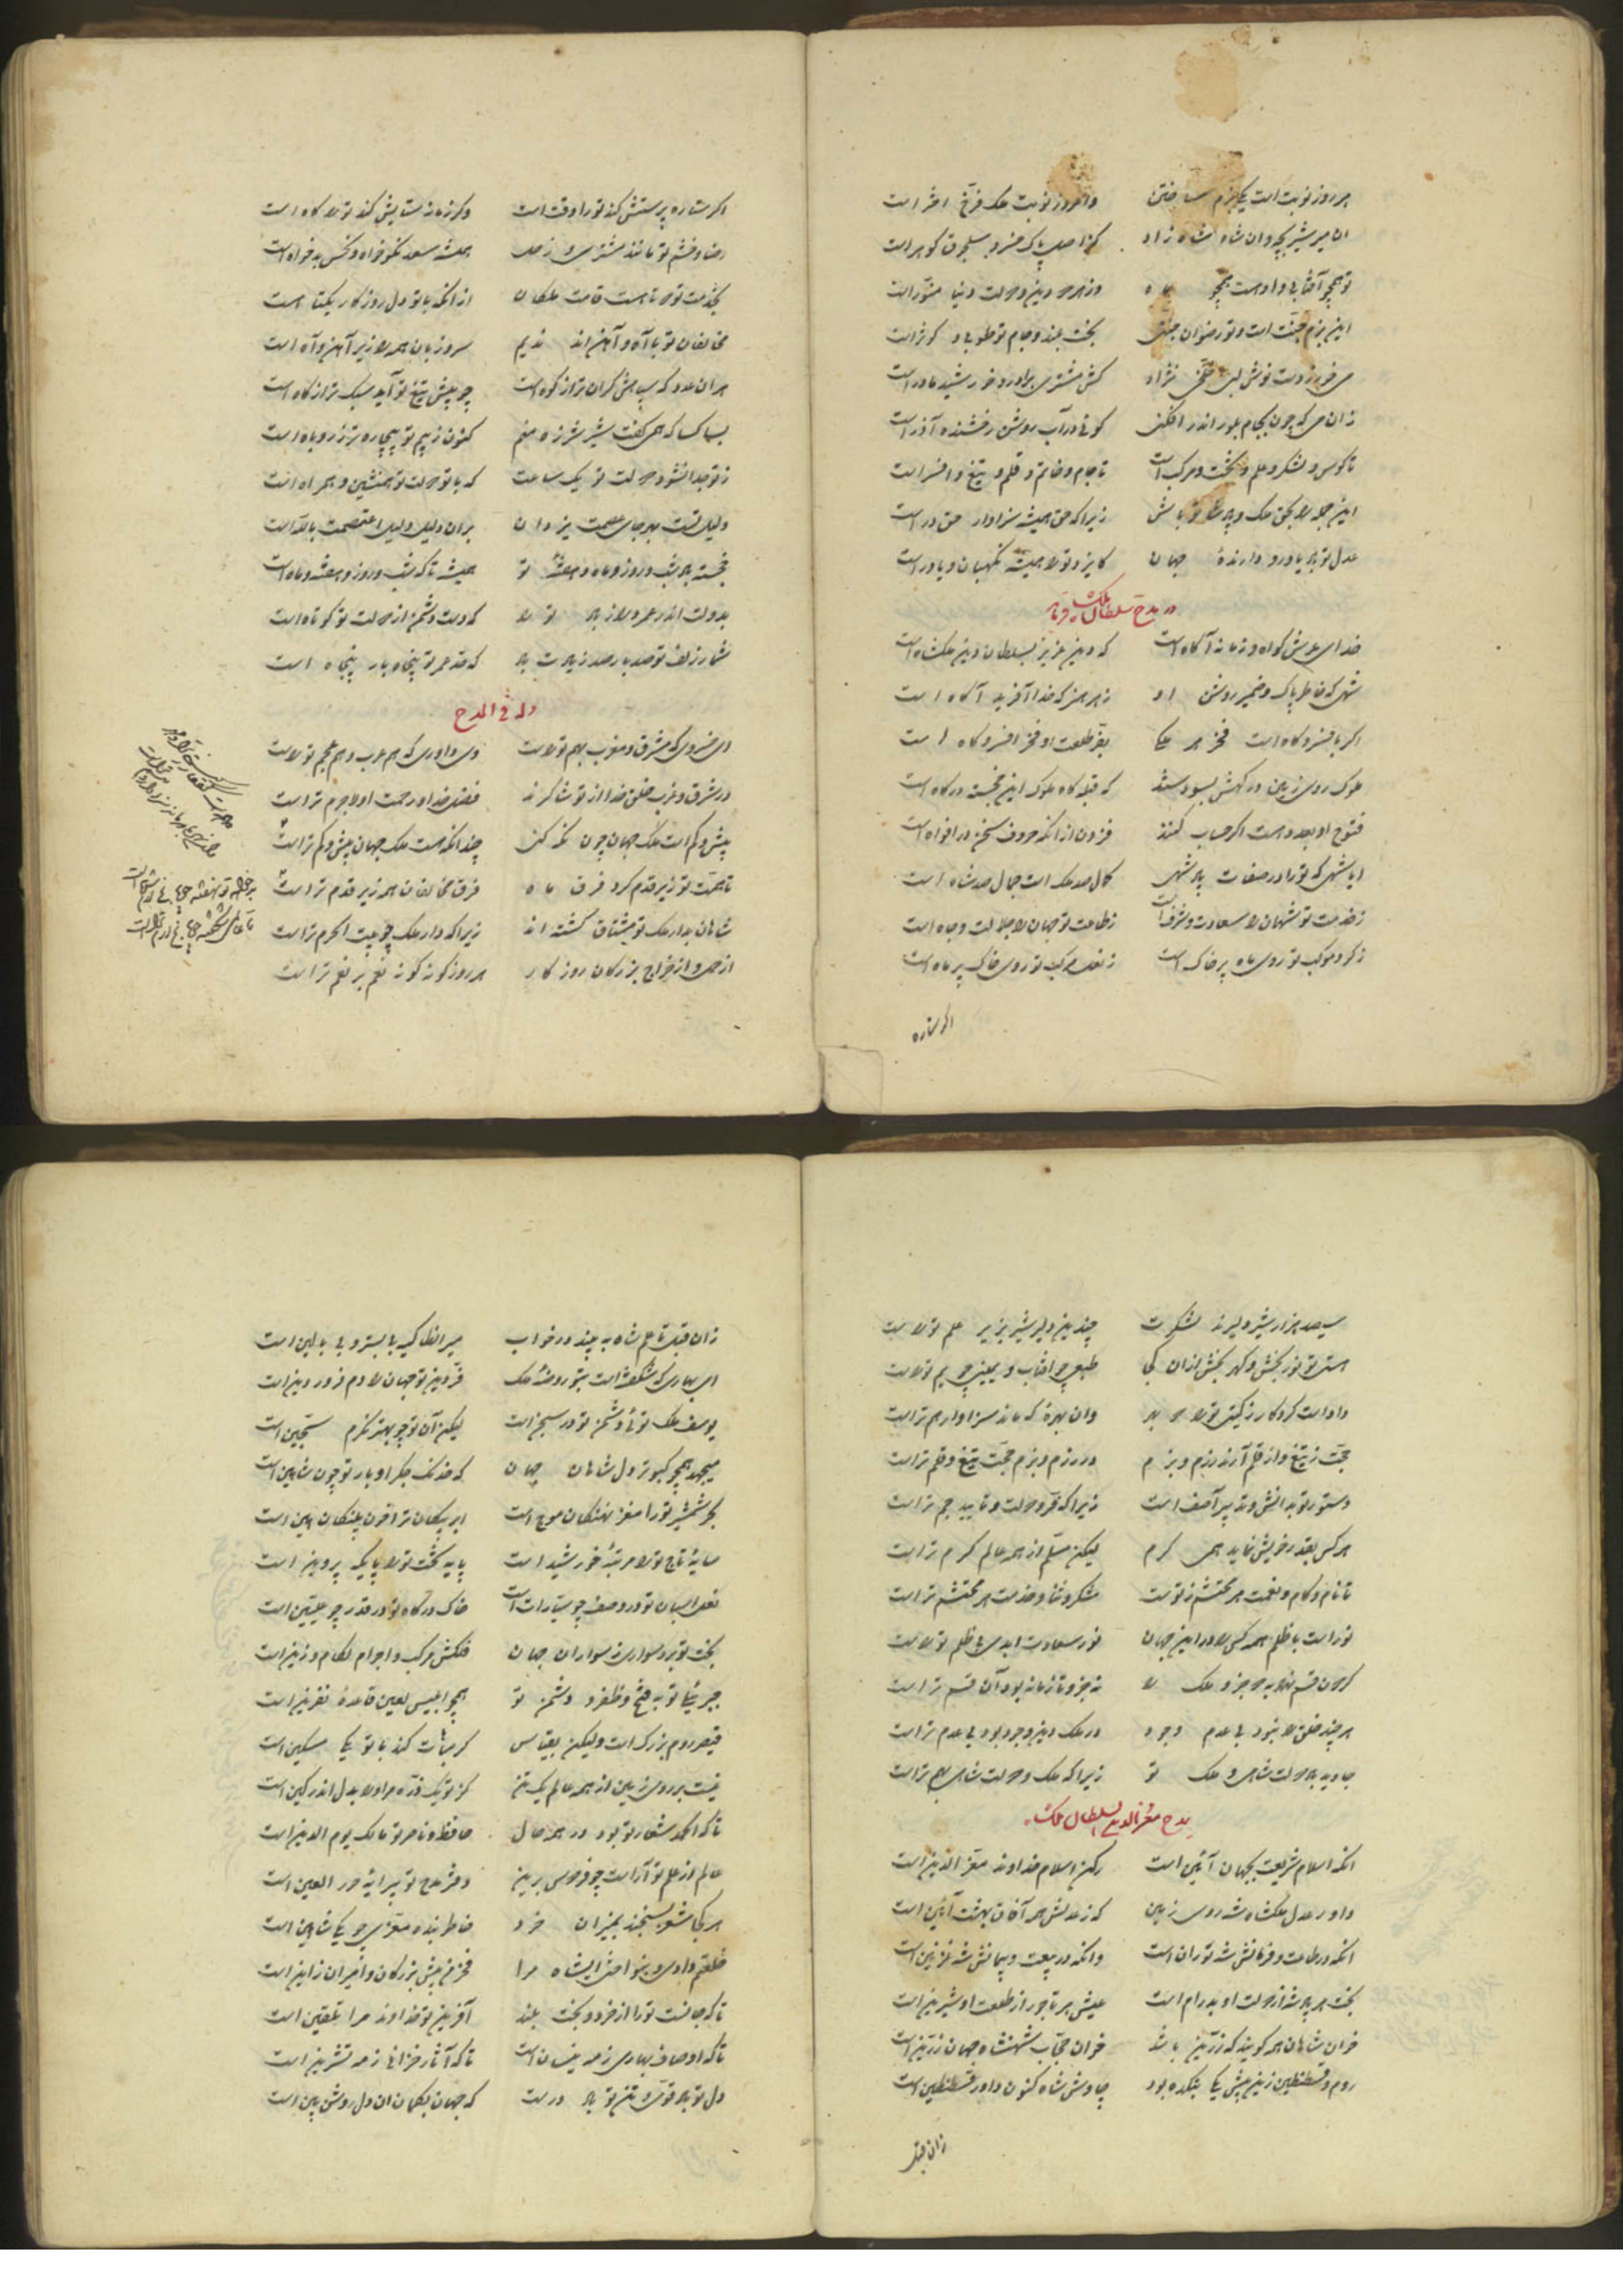 هر روز نوبت است یکی بزم ساختن وامروز نوبت ملک فرخ اختر است
آن میر شیر بچه و آن شاه شاه زاد کز اصل پاک خسرو سلجوق گوهر است
تو همچو آفتابی و او هست همچو ماه وز هر دو دین و دولت و دنیا منور است
این بزم جنت است و تو رضوان جنتی بخت بلند و جام تو طوبی و کوثر است
می خور ز دست نوش لبی خلخی نژاد کش مشتری برادر و خورشید مادر است
زان می که چون بجام بلور اندر افکنی گوئی در آب روشن رخشنده آذر است
تا کوس و لشکر و علم و تخت و مرکب است تا جام و خاتم و قلم و تیغ و افسر است
این جمله را بحق ملک و پادشاه باش زیرا که حق همیشه سزاوار حق در است
عدل تو باد یاور و دارنده جهان کایزد ترا همیشه نگهبان و یاور است
در مدح سلطان ملکشاه فرماید
خدای عرش گواه و زمانه آگاه است که دین عزیز بسلطان دین ملکشاه است
شهی که خاطر پاک و ضمیر روشن او ز هر هنر که خدا آفرید آگاه است
اگر بافسر و گاه است فخر هر ملکی بفر طلعت او فخر افسر و گاه است
ملوک روی زمین درگهش ببوسیدند که قبله گاه ملوک این خجسته درگاه است
فتوح او بعدد هست اگر حساب کنند فزون از آنکه حروف سخن در افواه است
ایا شهی که تو را در صفات پادشهی کمال صد ملک است جمال صد شاه است
ز خدمت تو شهان را سعادت و شرف است ز طاعت تو جهان را جلالت و جاه است
ز گرد موکب تو روی ماه پر خاک است ز نعل مرکب تو روی خاک پر ماه است
اگر ستاره
اگر ستاره پرستش کند تو را وقت است وگر زمانه ستایش کند ترا گاه است
رضا و خشم تو مانند مشتری و زحل همیشه سعد نکوخواه و نحس بدخواه است
بخدمت تو دو تا هست قامت ملکان از آنکه با تو دل روزگار یکتا است
مخالفان تو با آه و آهن اند ندیم سر و زبان همه را زیر آهن و آه است
هر آن عدو که سپاهش گران تر از کوه است چو پیش تیغ تو آید سبک تر از کاه است
بسا کسا که همی گفت شیر شرزه منم کنون ز بیم تو بیچاره تر ز روباه است
ز تو جدا نشود دولت تو یک ساعت که با تو دولت تو همنشین و همراه است
دلیل تست بهر جای عصمت یزدان بر آن دلیل دلیل اعتصمت بالله است
همیشه تا که شب و روز و هفته و ماه است خجسته باد شب و روز و ماه و هفته تو
بدولت اندر عمر دراز باد تو را که دست دشمن از دولت تو کوتاه است
شمار زلف تو صد بار صد زیادت باد که قد عمر تو پنجاه بار پنجاه است
وله فی المدح
ای خسروی که مشرق و مغرب بهم تراست وی داوری که هم عرب و هم عجم تراست
در شرق و غرب خلق خدا از تو شاکرند فضل خدا و رحمت او لاجرم تراست
بیش و کم است ملک جهان چون نگه کنی چندانکه هست ملک جهان بیش و کم تراست
تا همت تو زیر قدم کرد فرق ماه فرق مخالفان همه زیر قدم تراست
شاهان بدار ملک تو مشتاق گشته اند زیرا که دار ملک چو بیت الحرم تراست
از حمل و از خراج بزرگان روزگار هر روز گونه گونه نعم بر نعم تراست
سیصد هزار شیر دلیرند لشکرت چندین دلیر شیر بزیر علم تراست
هستی تو نور بخش و گهر بخش از آن کجا طبعی چو آفتاب و یمینی چو یم تراست
داد است کردگار ز گیتی ترا دو بهر وان بهره که ماند سزاوار هم تراست
حجت ز تیغ و از قلم آرند رزم و بزم در رزم و بزم حجت تیغ و قلم تراست
دستور تو بدانش و تدبیر آصف است زیرا که قدر و دولت و تایید جم تراست
هر کس بقدر خویش نماید همی کرم لیکن مسلم از همه عالم کرم تراست
تا نام و کام و نعمت هر محتشم ز توست شکر و ثنا و خدمت هر محتشم تراست
نور است با ظلم همه کس را در این جهان نور سعادت ابدی بی ظلم تراست
هر چند خلق را نبود بی عدم وجود در ملک دین وجود بود بی عدم تراست
جاوید باد دولت شاهی و ملک تو زیرا که ملک و دولت شاهی بهم تراست
بمدح معزالدین السلطان ملکشاه
آنکه اسلام شریعت بجهان آئین است رکن اسلام خداوند معز الدین است
داور عدل ملکشاه شه روی زمین که ز عدلش همه آفاق بهشت آئین است
آنکه در طاعت و فرمانش شه توران است وانکه در بیعت و پیمانش شه غزنین است
بخت هر پادشه از دولت او پدرام است عیش هر تاجور از طلعت او شیرین است
خوان شاهان همه گویند که زرین باشد خوان حجاب شهنشاه جهان زرین است
روم و قسطنطین زین پیش یکی بتکده بود چاوش شاه کنون داور قسطنطین است
زان قبل
زان قبل تا علم شاه به بیند در خواب میر انطاکیه بی بستر و بی بالین است
ای بهاری که شکفته است بتو روضه ملک فرّ دین تو جهان را دم فروردین است
یوسف ملک توئی و دشمن تو در سجن است لیکن آن تو چو بهتر نگرم سجین است
میجهد همچو کبوتر دل شاهان جهان که خدنگ جگر اوبار تو چون شاهین است
بحر شمشیر تو را مغز نهنگان موج است ابر پیکان ترا خون پلنگان هین است
سایه تاج ترا مرتبه خورشید است پایه تخت ترا پایگه پروین است
نعل اسبان تو در وصف چو سیارات است خاک درگاه تو در قدر چو علیین است
بخت تو برد سواری ز سواران جهان فلکش مرکب و اجرام لگام و زین است
جبرئیل تو به فتح و ظفر و دشمن تو همچو ابلیس لعین قاعده نفرین است
قیصر روم بزرگ است ولیکن بقیاس گر مباهات کند با تو یکی مسکین است
نیست بر روی زمین از همه عالم یک تن کز تو یک ذره مر او را بدل اندر کین است
تا که الحمد شعار تو بود در همه حال حافظ و ناصر تو مالک یوم الدین است
عالم از علم تو آراست چو فردوس برین دفتر مدح تو پیرایه حور العین است
هر کجا شعر بسنجند بمیزان خرد خاطر بنده معزی چو یکی شاهین است
خلعتم دادی و بنواختی ای شاه مرا فخر من پیش بزرگان و امیران زین است
تا که جانست تو را از خرد و بخت بلند آفرین تو خداوند مرا تلقین است
تا که اوصاف بهاری ز مه نیسان است تا که آثار خزانی ز مه تشرین است
دل تو باد قوی و تن تو باد درست که جهان بگمان آن دل روشن بین است